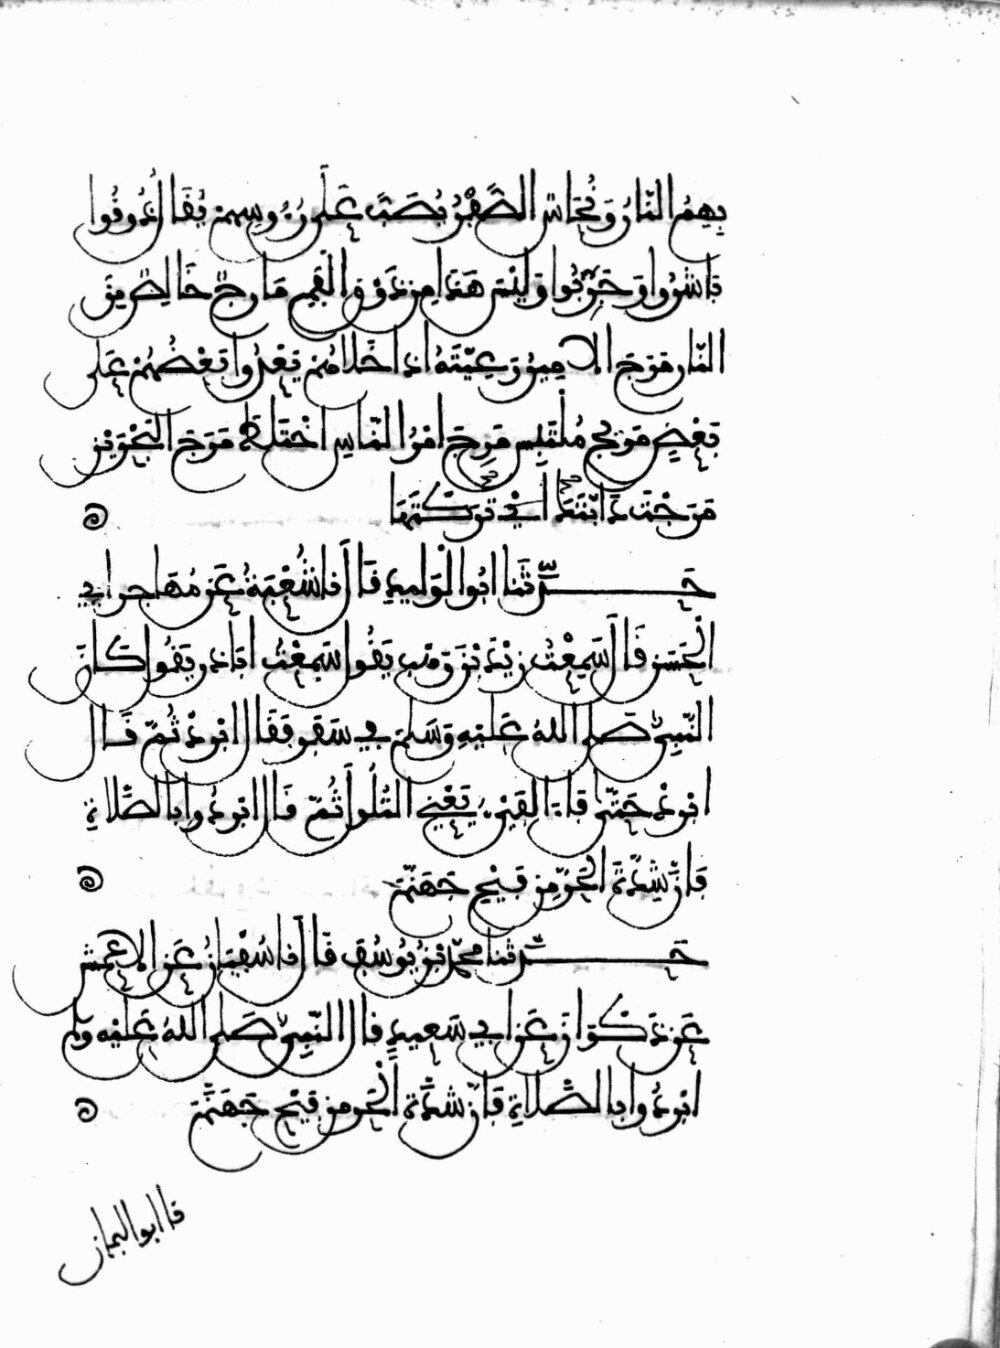 بِهِمُ النَّارُ وَنُحَاسٌ الصُّفْرُ يُصَبُّ عَلَى رُءُوسِهِمْ يُقَالُ ذُوقُوا
بَاشِرُوا وَجَرِّبُوا وَلَيْسَ هَذَا مِنْ ذَوْقِ الْفَمِ مَارِجٌ خَالِصٌ مِنَ
النَّارِ مَرَجَ الأَمِيرُ رَعِيَّتَهُ إِذَا خَلَّاهُمْ يَعْدُوا بَعْضُهُمْ عَلَى
بَعْضٍ مَرِيجٍ مُلْتَبِسٍ مَرِجَ أَمْرُ النَّاسِ اخْتَلَطَ مَرَجَ الْبَحْرَيْنِ
مَرَجْتَ دَابَّتَكَ أَيْ تَرَكْتَهَا
حَدَّثَنَا أَبُو الْوَلِيدِ قَالَ نَا شُعْبَةُ عَنْ مُهَاجِرٍ أَبِي
الْحَسَنِ قَالَ سَمِعْتُ زَيْدَ بْنَ وَهْبٍ يَقُولُ سَمِعْتُ أَبَا ذَرٍّ يَقُولُ كَانَ
النَّبِيُّ صَلَّى اللهُ عَلَيْهِ وَسَلَّمَ فِي سَفَرٍ فَقَالَ أَبْرِدْ ثُمَّ قَالَ
أَبْرِدْ حَتَّى فَاءَ الْفَيْءُ يَعْنِي التُّلُولَ ثُمَّ قَالَ أَبْرِدُوا بِالصَّلَاةِ
فَإِنَّ شِدَّةَ الْحَرِّ مِنْ فَيْحِ جَهَنَّمَ
حَدَّثَنَا مُحَمَّدُ بْنُ يُوسُفَ قَالَ نَا سُفْيَانُ عَنِ الأَعْمَشِ
عَنْ ذَكْوَانَ عَنْ أَبِي سَعِيدٍ قَالَ النَّبِيُّ صَلَّى اللهُ عَلَيْهِ وَسَلَّمَ
أَبْرِدُوا بِالصَّلَاةِ فَإِنَّ شِدَّةَ الْحَرِّ مِنْ فَيْحِ جَهَنَّمَ
نا ابو اليمان